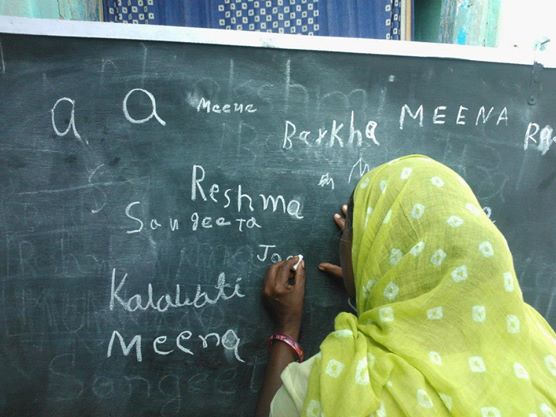 a a Meene
Barkha
MEENA
Reshma
Sangeeta
Ja
Kalawati
Meena
Sangeet